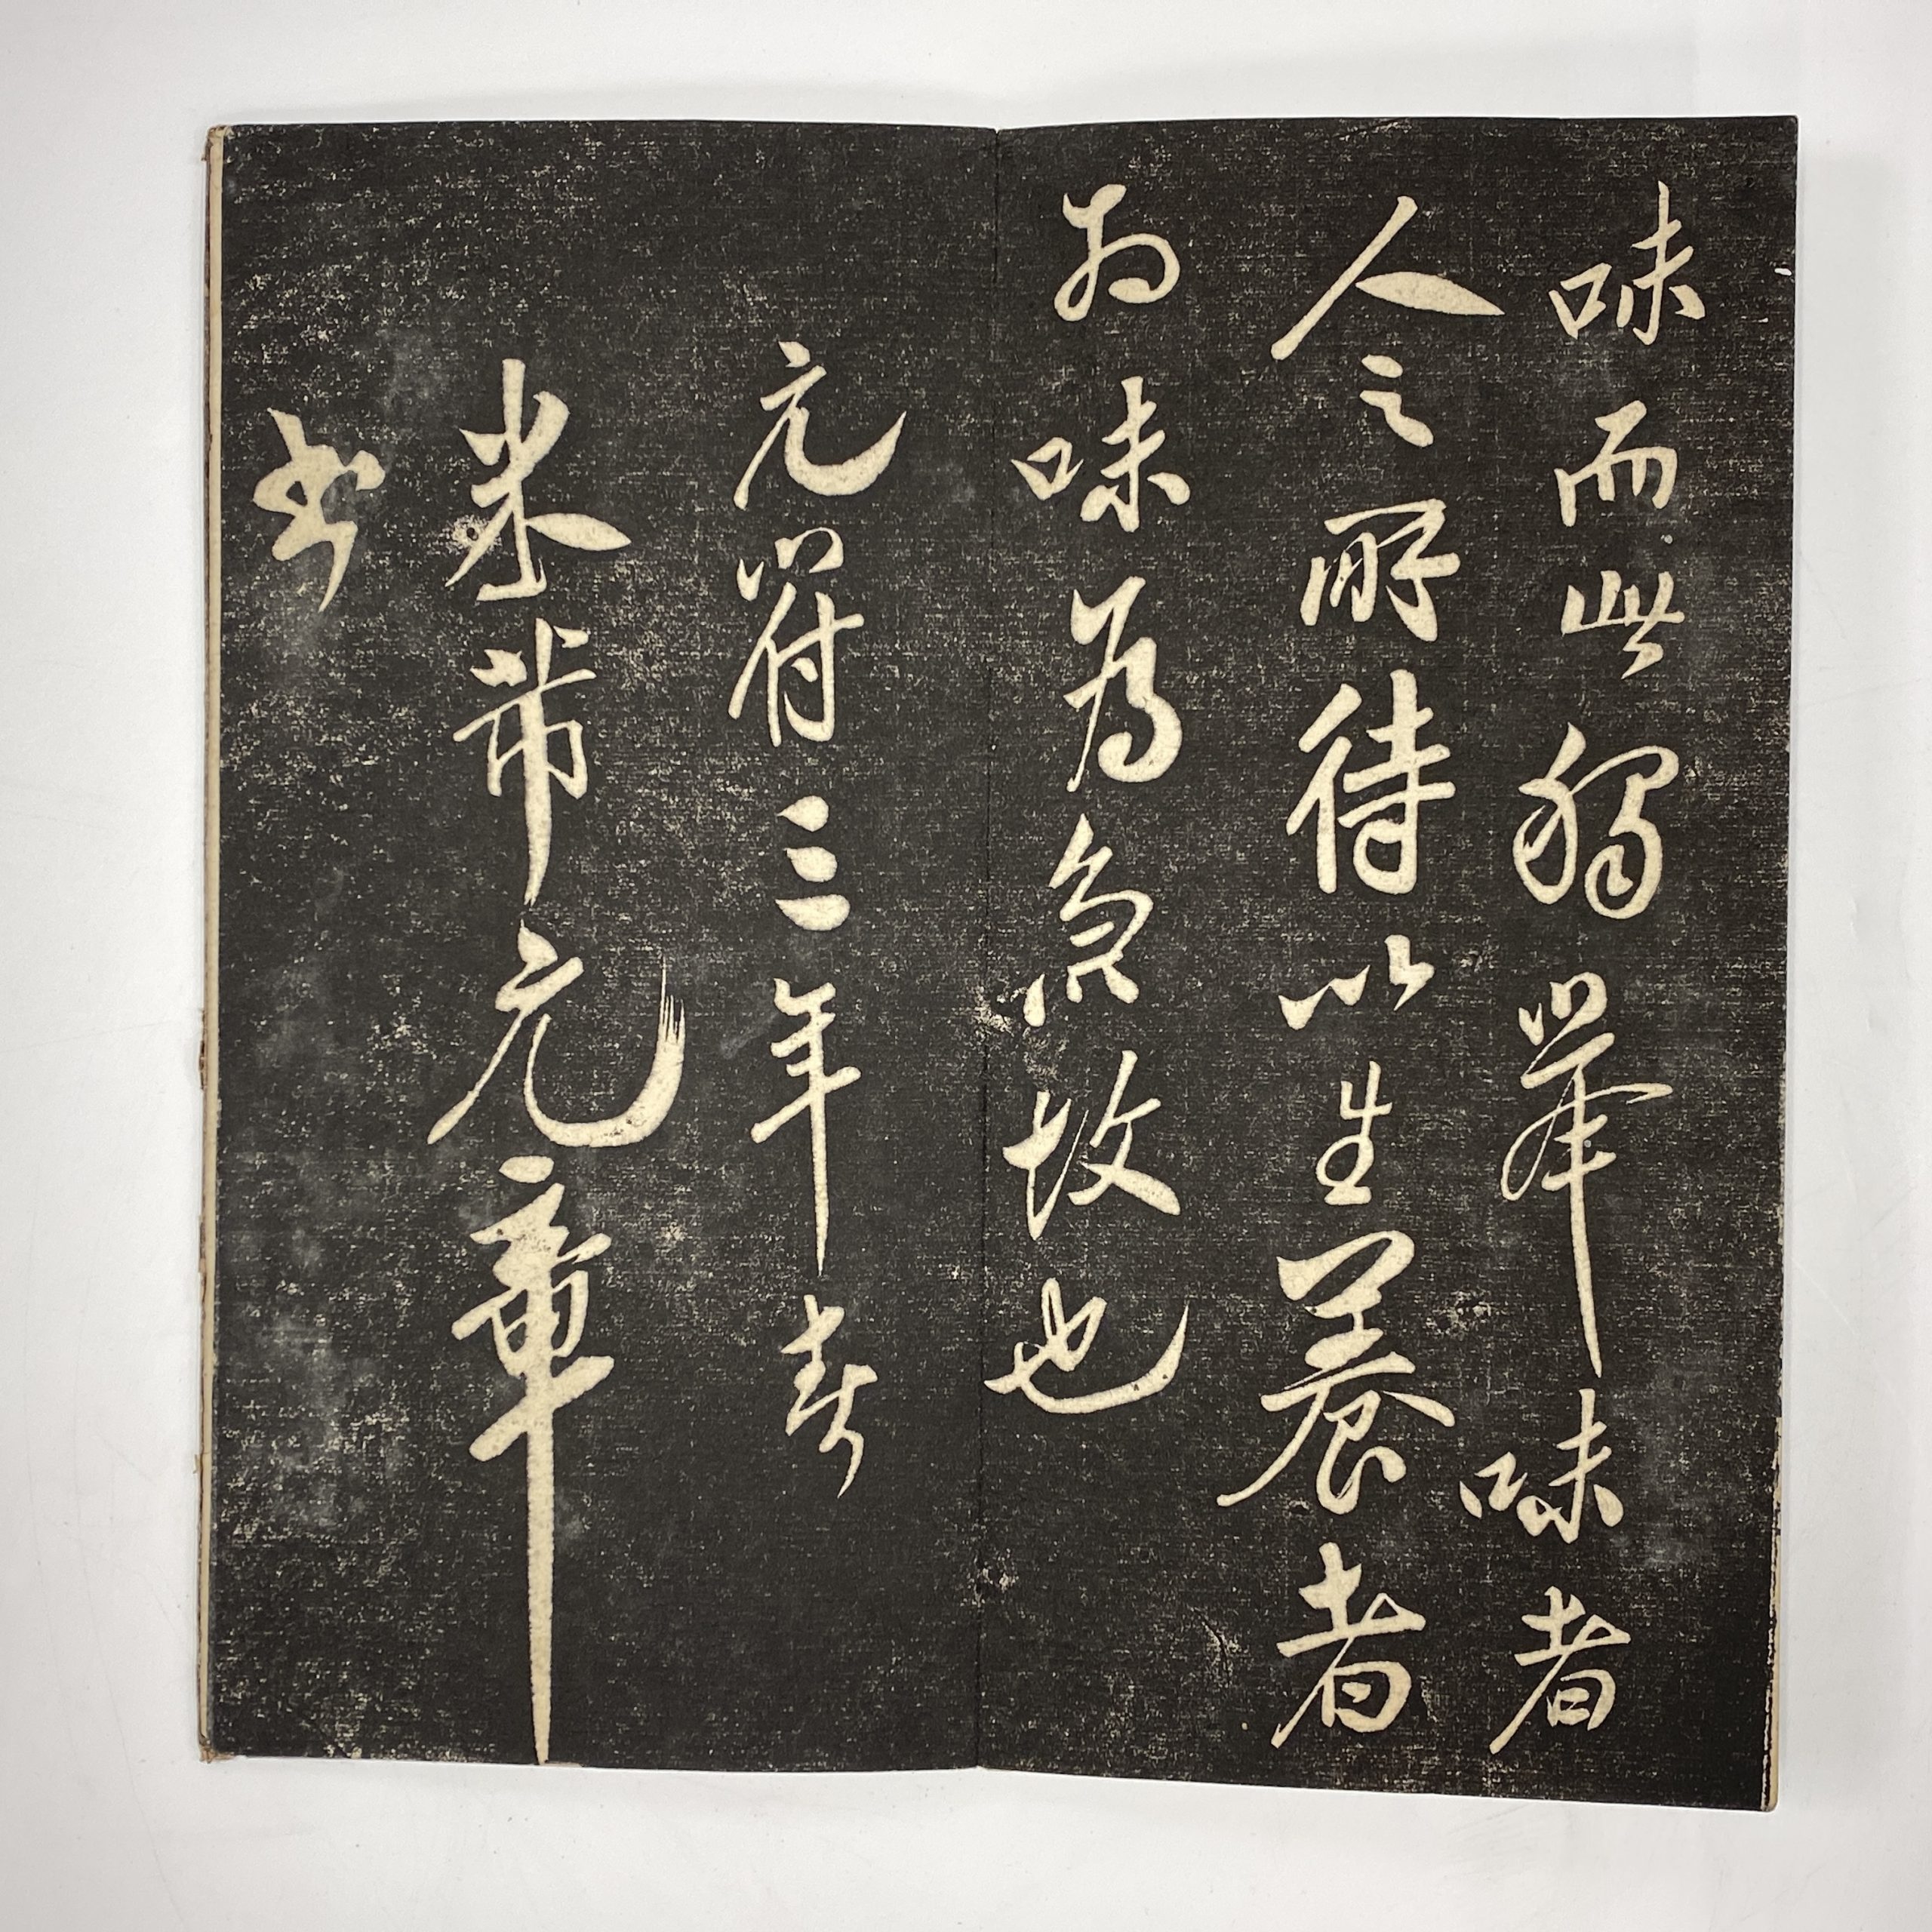 味而此獨舉味者
人之所待以生養者
以味為急故也
元符三年春
米芾元章
書